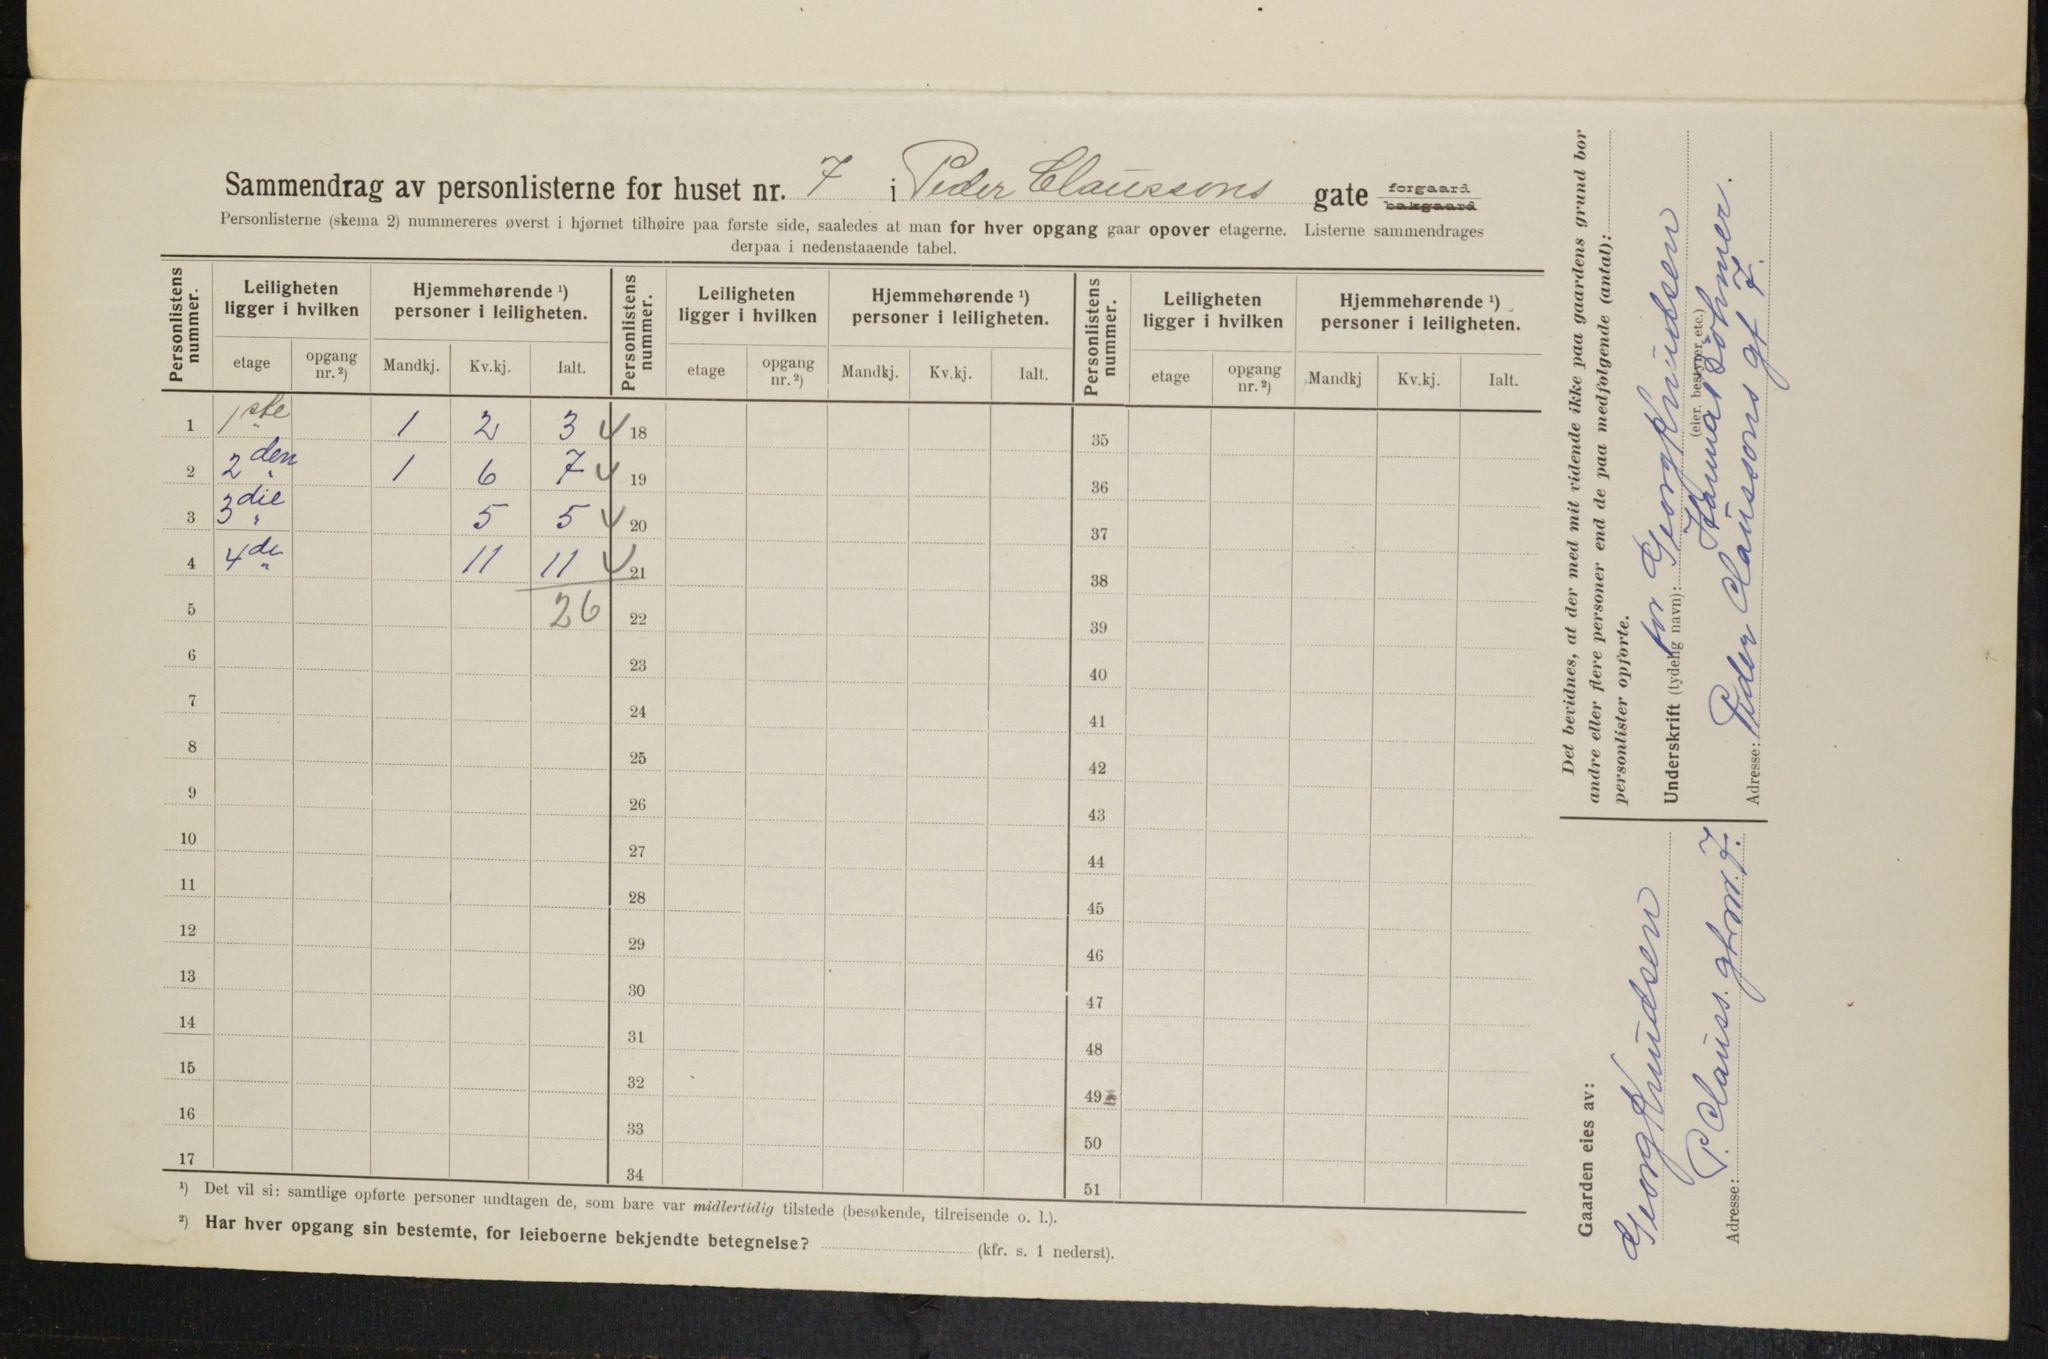 Sammendrag av personlisterne for huset nr. 7 i Peder Claussøns gate forgaard bakgaard
Personlisterne (skema 2) nummereres øverst i hjørnet tilhøire paa første side, saaledes at man for hver opgang gaar opover etagerne. Listerne sammendrages
derpaa i nedenstaaende tabel.
Personlistens nummer. Leiligheten ligger i hvilken Hjemmehørende ¹) personer i leiligheten. Personlistens nummer. Leiligheten ligger i hvilken Hjemmehørende ¹) personer i leiligheten. Personlistens nummer. Leiligheten ligger i hvilken Hjemmehørende ¹) personer i leiligheten.
etage opgang nr. ²) Mandkj. Kv.kj. Ialt. etage opgang nr. ²) Mandkj. Kv.kj. Ialt. etage opgang nr. ²) Mandkj Kv.kj. Ialt.
1 1ste 1 2 3 18 35
2 2den " 1 6 7 19 36
3 3die " 5 5 20 37
4 4de " 11 11 21 38
5 26 22 39
6 23 40
7 24 41
8 25 42
9 26 43
10 27 44
11 28 45
12 29 46
13 30 47
14 31 48
15 32 49
16 33 50
17 34 51
¹) Det vil si: samtlige opførte personer undtagen de, som bare var midlertidig tilstede (besøkende, tilreisende o. l.).
²) Har hver opgang sin bestemte, for leieboerne bekjendte betegnelse? (kfr. s. 1 nederst).
Det bevidnes, at der med mit vidende ikke paa gaardens grund bor
andre eller flere personer end de paa medfølgende (antal):
personlister opførte.
for Georg Knudsen
Underskrift (tydelig navn):
(eier, bestyrer etc.)
Böhmer.
Adresse: Peder Claussøns gt 7.
Gaarden eies av:
Georg Knudsen
Adresse: P. Clauss. gt nr. 7.